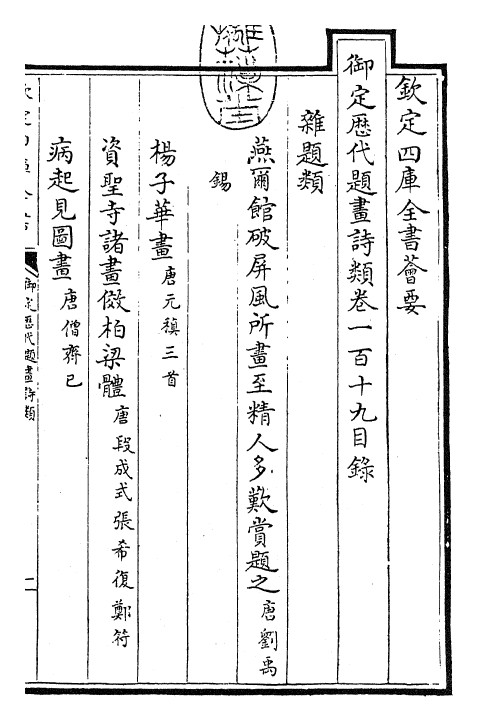 欽定四庫全書薈要
御定歷代題畫詩類卷一百十九目錄
雜題類
燕爾館破屏風所畫至精人多歎賞題之唐劉禹
錫
楊子華畫唐元稹三首
資聖寺諸畫倣柏梁體唐段成式張希復鄭符
病起見圖畫唐僧齊己
御定歷代題畫詩類